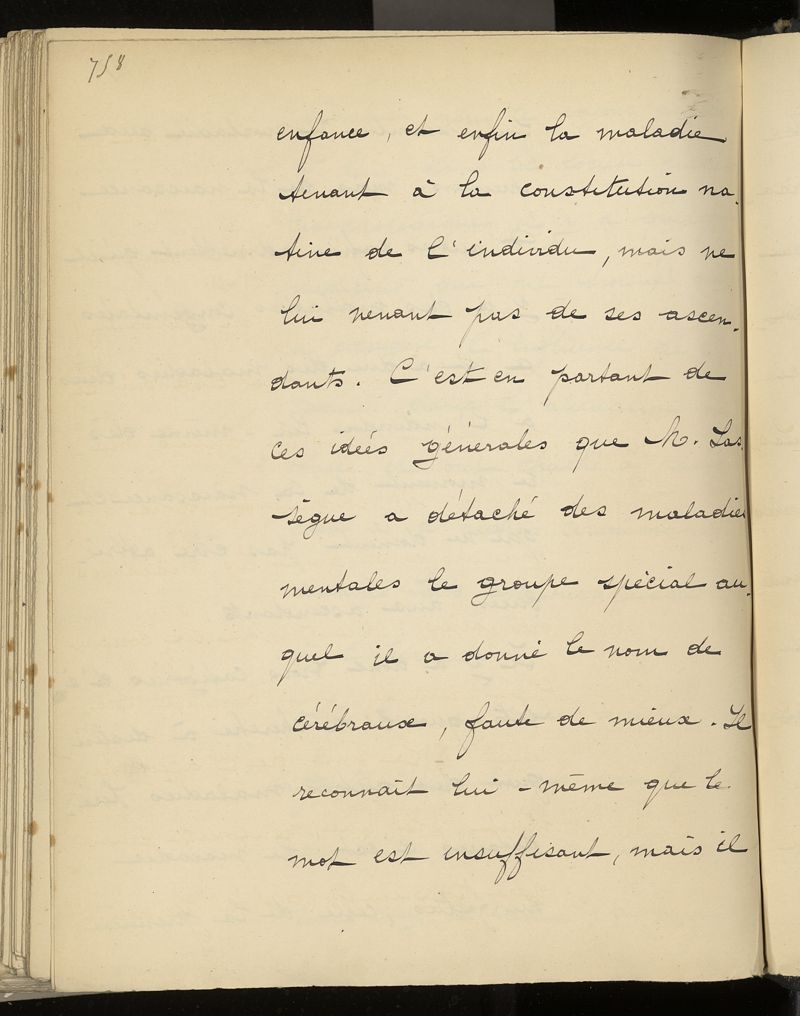 758
enfance, et enfin la maladie
tenant à la constitution na-
tive de l'individu, mais ne
lui venant pas de ses ascen-
dants. C'est en partant de
ces idées générales que M. Las-
sègue a détaché des maladies
mentales le groupe spécial au-
quel il a donné le nom de
cérébraux, faute de mieux. Il
reconnait lui-même que le
mot est insuffisant, mais il